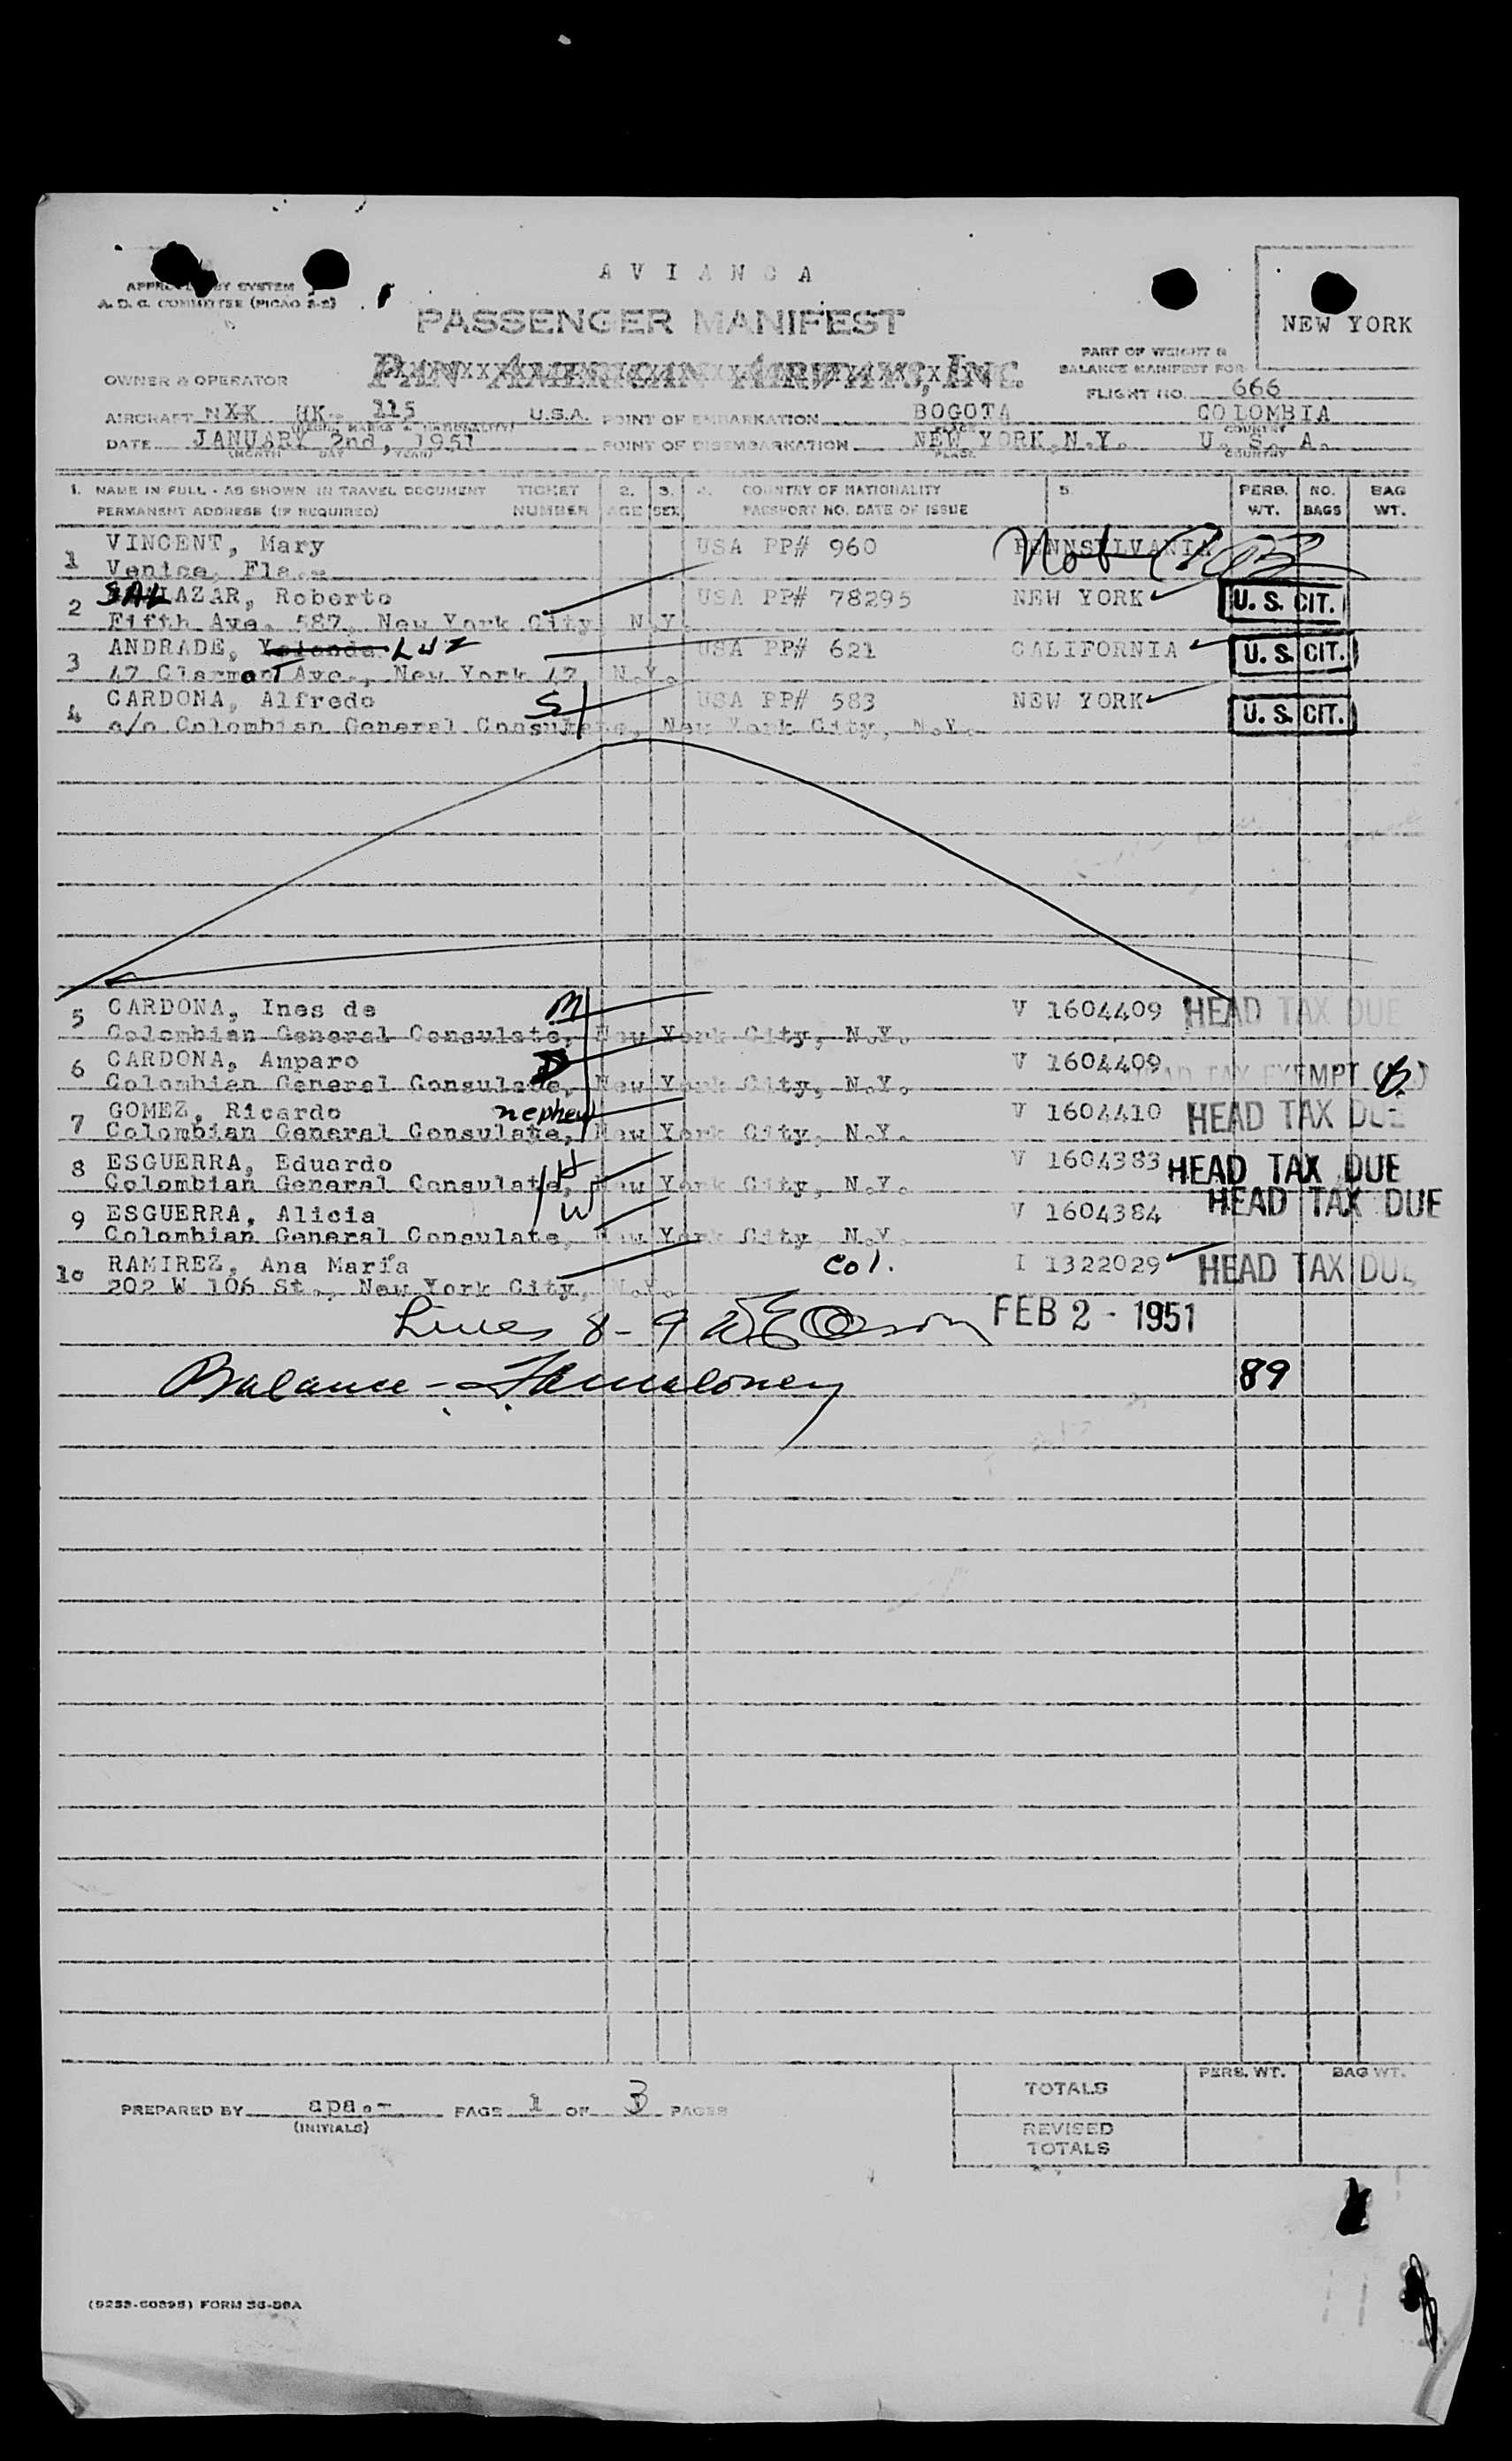 A V I A N C A
APPROVED BY SYSTEM
A. D. C. COMMITTEE (PICAO 2-2)
PASSENGER MANIFEST
NEW YORK
PAN AMERICAN AIRWAYS, INC.
PART OF WEIGHT &
BALANCE MANIFEST FOR
OWNER & OPERATOR
FLIGHT NO. 666
AIRCRAFT NXX HK- 115 U.S.A. POINT OF EMBARKATION BOGOTA COLOMBIA
PLACE COUNTRY
DATE JANUARY 2nd, 1951 POINT OF DISEMBARKATION NEW YORK, N.Y. U. S. A.
(MONTH DAY YEAR) PLACE COUNTRY
1. NAME IN FULL - AS SHOWN IN TRAVEL DOCUMENT TICKET 2. 3. 4. COUNTRY OF NATIONALITY 5. PERS. NO. BAG
PERMANENT ADDRESS (IF REQUIRED) NUMBER AGE SEX PASSPORT NO. DATE OF ISSUE WT. BAGS WT.
1 VINCENT, Mary USA PP# 960 PENNSYLVANIA Not
Venice, Fla.-
2 SALAZAR, Roberto USA PP# 78295 NEW YORK U. S. CIT.
Fifth Ave. 587, New York City N.Y.
3 ANDRADE, Yolanda Luz USA PP# 621 CALIFORNIA U. S. CIT.
47 Claremont Ave., New York 47 N.Y.
4 CARDONA, Alfredo S USA PP# 583 NEW YORK U. S. CIT.
c/o Colombian General Consulate, New York City, N.Y.
5 CARDONA, Ines de M V 1604409 HEAD TAX DUE
Colombian General Consulate, New York City, N.Y.
6 CARDONA, Amparo D V 1604409 HEAD TAX EXEMPT
Colombian General Consulate, New York City, N.Y.
7 GOMEZ, Ricardo nephew V 1604410 HEAD TAX DUE
Colombian General Consulate, New York City, N.Y.
8 ESGUERRA, Eduardo H V 1604383 HEAD TAX DUE
Colombian General Consulate, New York City, N.Y.
9 ESGUERRA, Alicia W V 1604384 HEAD TAX DUE
Colombian General Consulate, New York City N.Y.
10 RAMIREZ, Ana María Col. I 1322029 HEAD TAX DUE
202 W 106 St., New York City, N.Y.
Lines 8-9 FEB 2 - 1951
Balance - 89
TOTALS PERS. WT. BAG WT.
PREPARED BY apa.- PAGE 1 OF 3 PAGES
(INITIALS)
REVISED
TOTALS
(9253-60395) FORM 36-59A